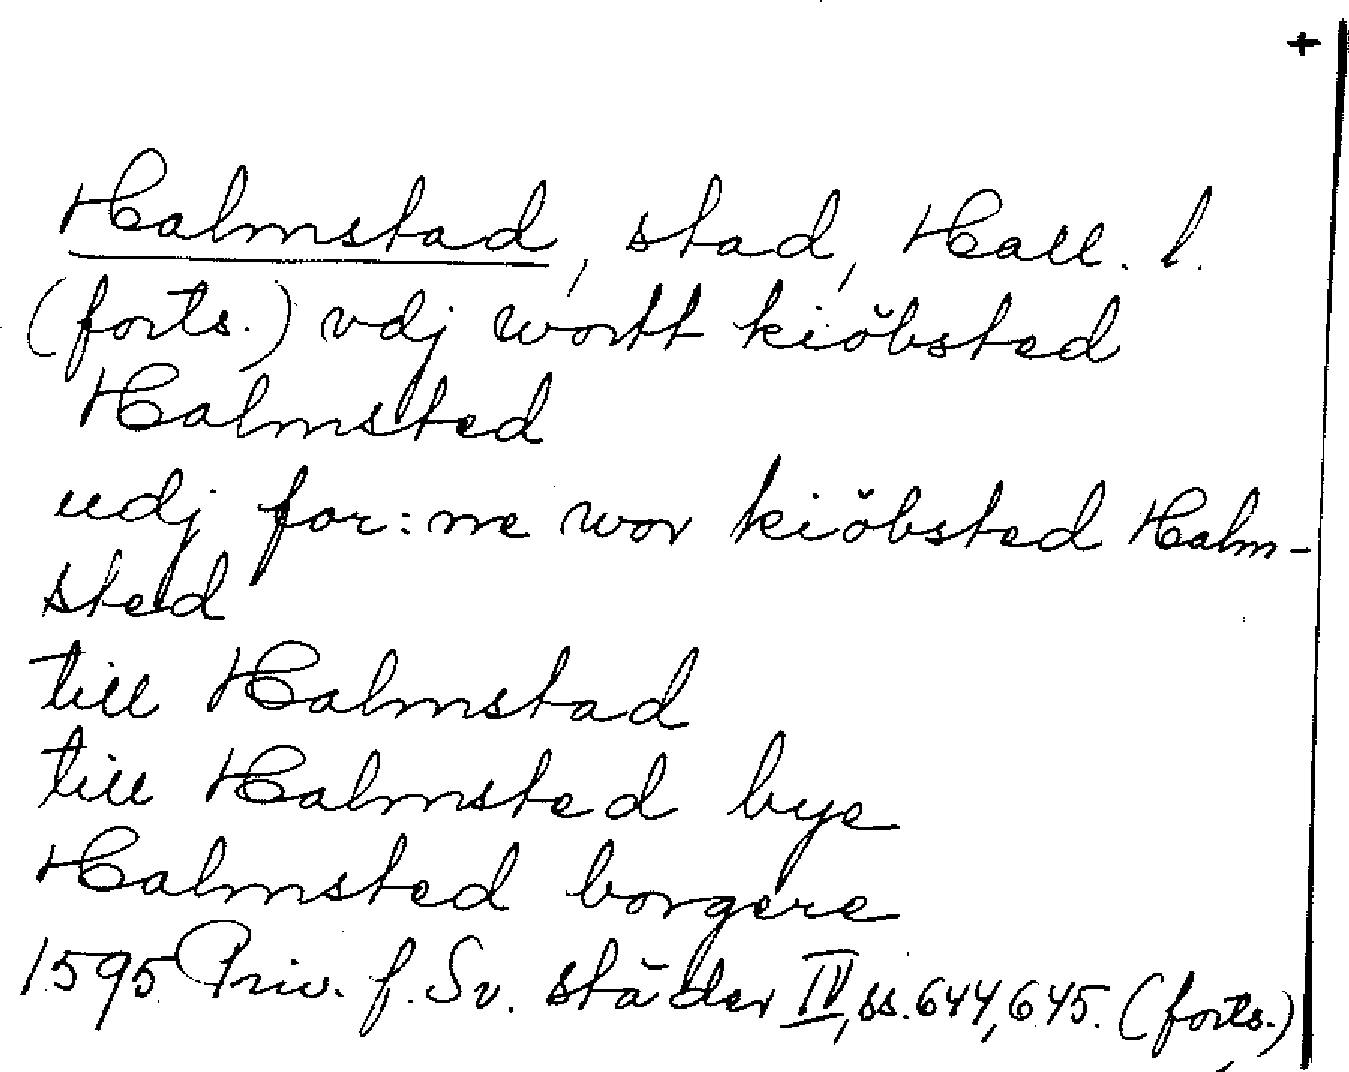 +
Halmstad, stad, Hall. l.
(forts.) vdj wortt kiöbsted
Halmsted
udj for:ne wor kiöbsted Halm-
sted
till Halmstad
till Halmsted bye
Halmsted borgere
1595 Priv. f. Sv. städer IV, ss. 644, 645. (forts.)